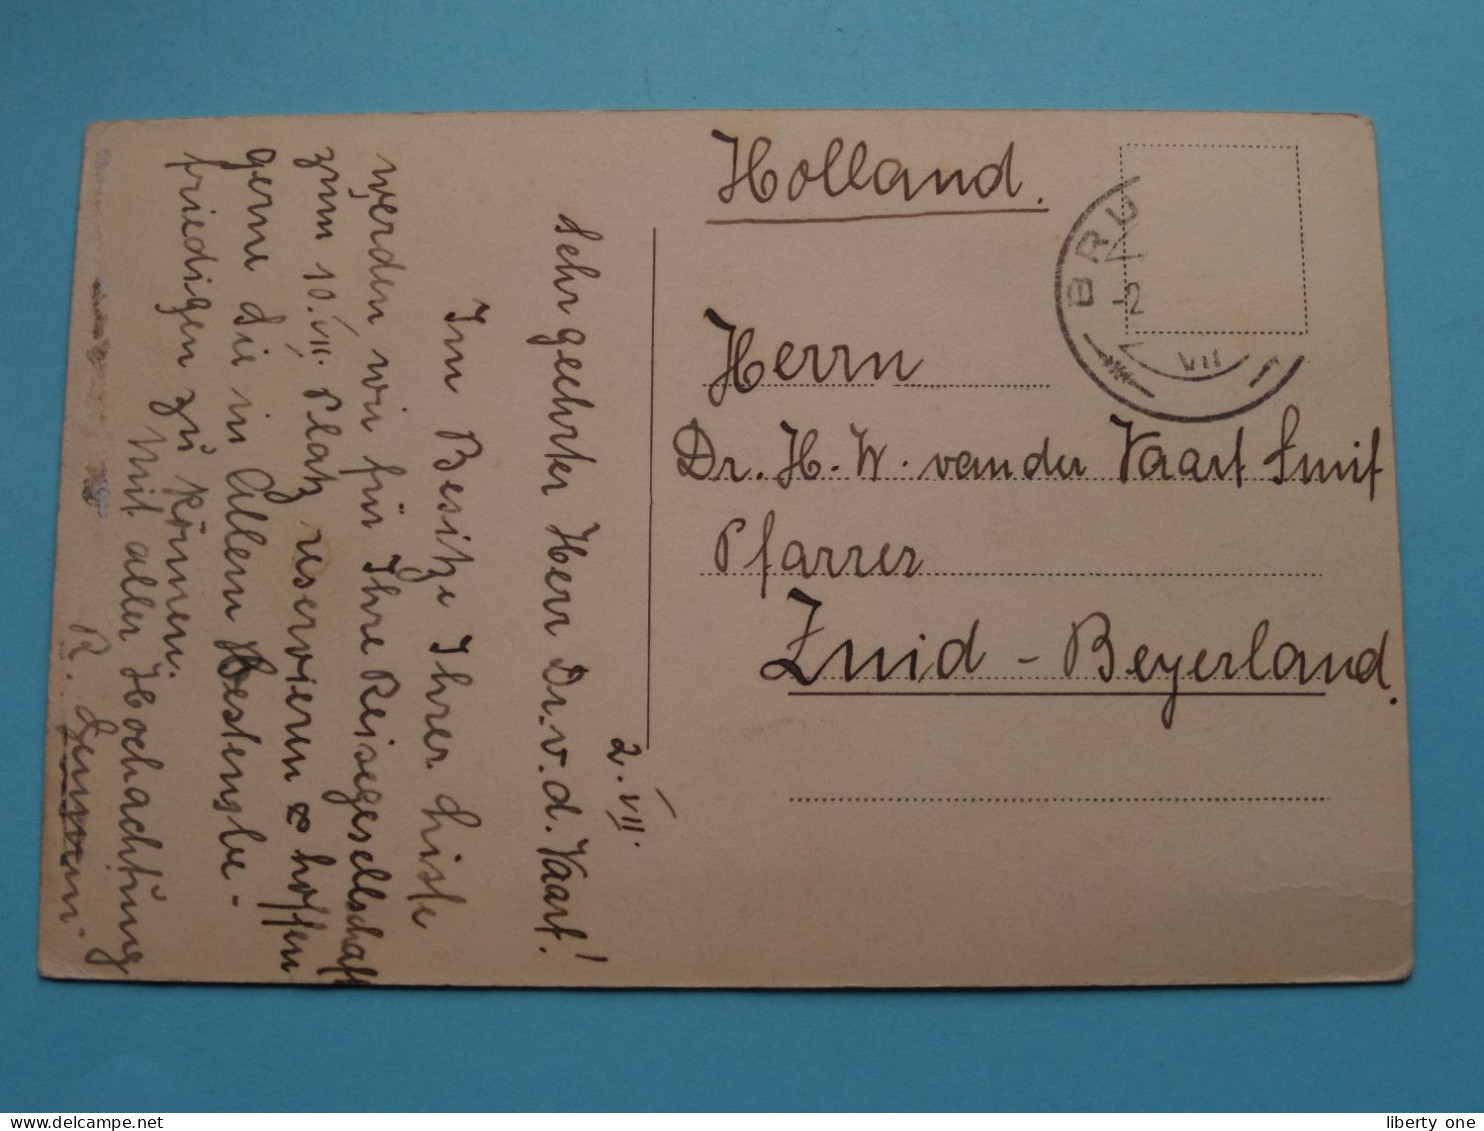 Holland.
BRU
-2
VII
Herrn
Dr. H. W. van der Vaart Smit
Pfarrer
Zuid-Beyerland.
2. VII.
Sehr geehrter Herr Dr. v. d. Vaart!
Im Besitze Ihrer Liste
werden wir für Ihre Reisegesellschaft
zum 10. VII. Platz reservieren & hoffen
gerne Sie in Allem Bestens be-
friedigen zu können.
Mit aller Hochachtung
R.
liberty one